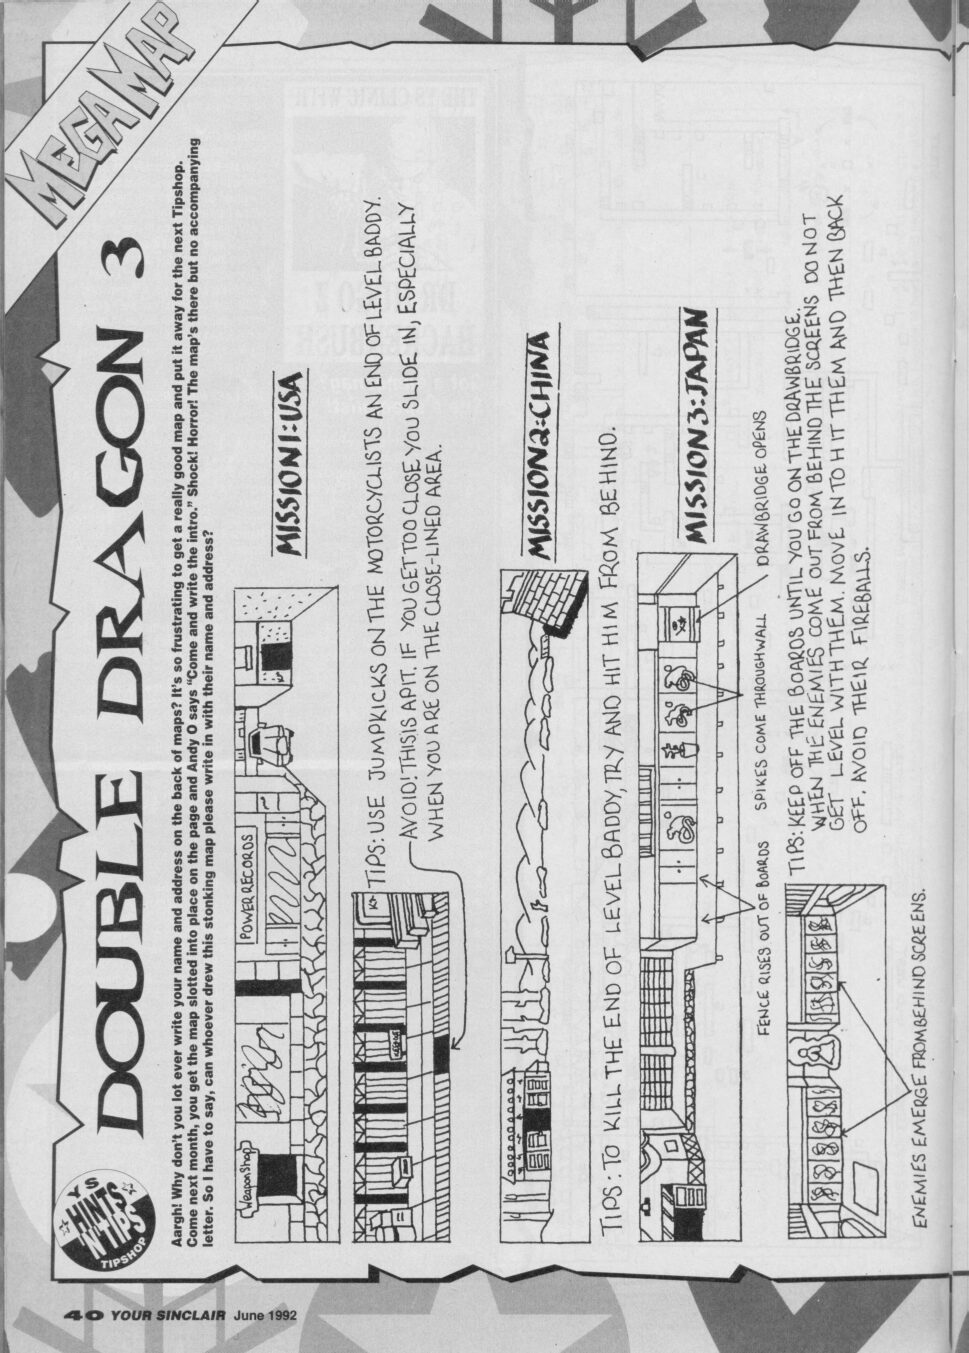 MEGA MAP
DOUBLE DRAGON 3
YS
HINTS
'N' TIPS
TIPSHOP
Aargh! Why don't you lot ever write your name and address on the back of maps? It's so frustrating to get a really good map and put it away for the next Tipshop.
Come next month, you get the map slotted into place on the page and Andy O says "Come and write the intro." Shock! Horror! The map's there but no accompanying
letter. So I have to say, can whoever drew this stonking map please write in with their name and address?
MISSION 1: USA
Weapon Shop
POWER RECORDS
TIPS: USE JUMPKICKS ON THE MOTORCYCLISTS AN END OF LEVEL BADDY.
AVOID! THIS IS A PIT. IF YOU GET TOO CLOSE YOU SLIDE IN, ESPECIALLY
WHEN YOU ARE ON THE CLOSE-LINED AREA.
MISSION 2: CHINA
TIPS: TO KILL THE END OF LEVEL BADDY, TRY AND HIT HIM FROM BEHIND.
MISSION 3: JAPAN
FENCE RISES OUT OF BOARDS
SPIKES COME THROUGH WALL
DRAWBRIDGE OPENS
TIPS: KEEP OFF THE BOARDS UNTIL YOU GO ON THE DRAWBRIDGE.
WHEN THE ENEMIES COME OUT FROM BEHIND THE SCREENS DO NOT
GET LEVEL WITH THEM. MOVE IN TO HIT THEM AND THEN BACK
OFF. AVOID THEIR FIREBALLS.
ENEMIES EMERGE FROM BEHIND SCREENS.
40 YOUR SINCLAIR June 1992